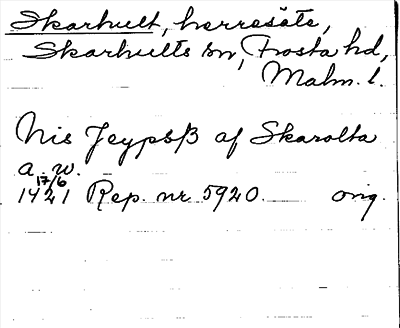 Skarhult, herresäte,
Skarhults sn, Frosta hd,
Malm. l.
Nis Jeypsß af Skarolta
a. w.
17/6
1421 Rep. nr 5920. orig.